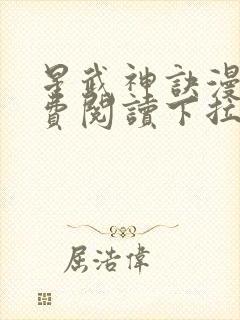 星武神訣漫
費閱讀下拉
屈浩偉